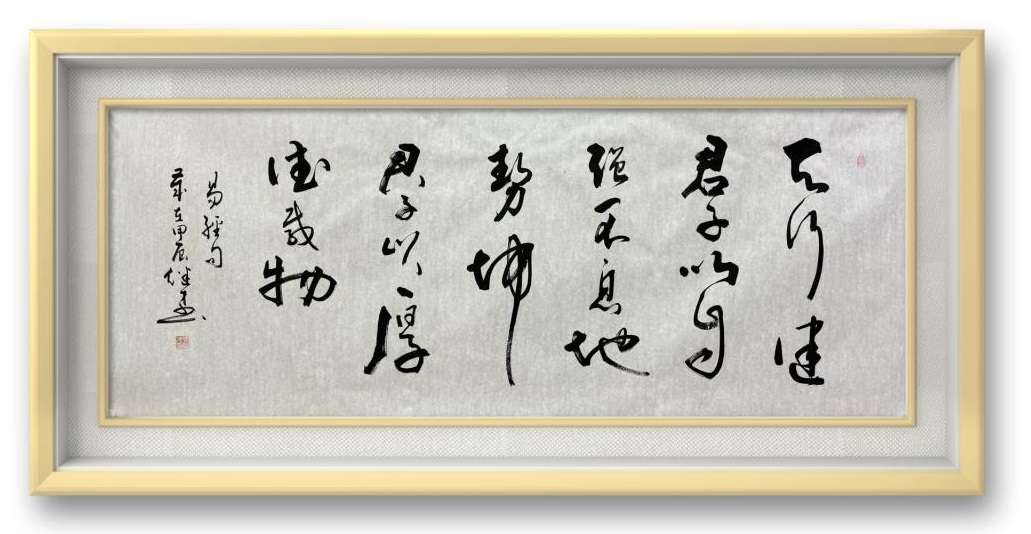 天行健
君子以自
强不息地
势坤
君子以厚
德载物
易经句
岁在甲辰